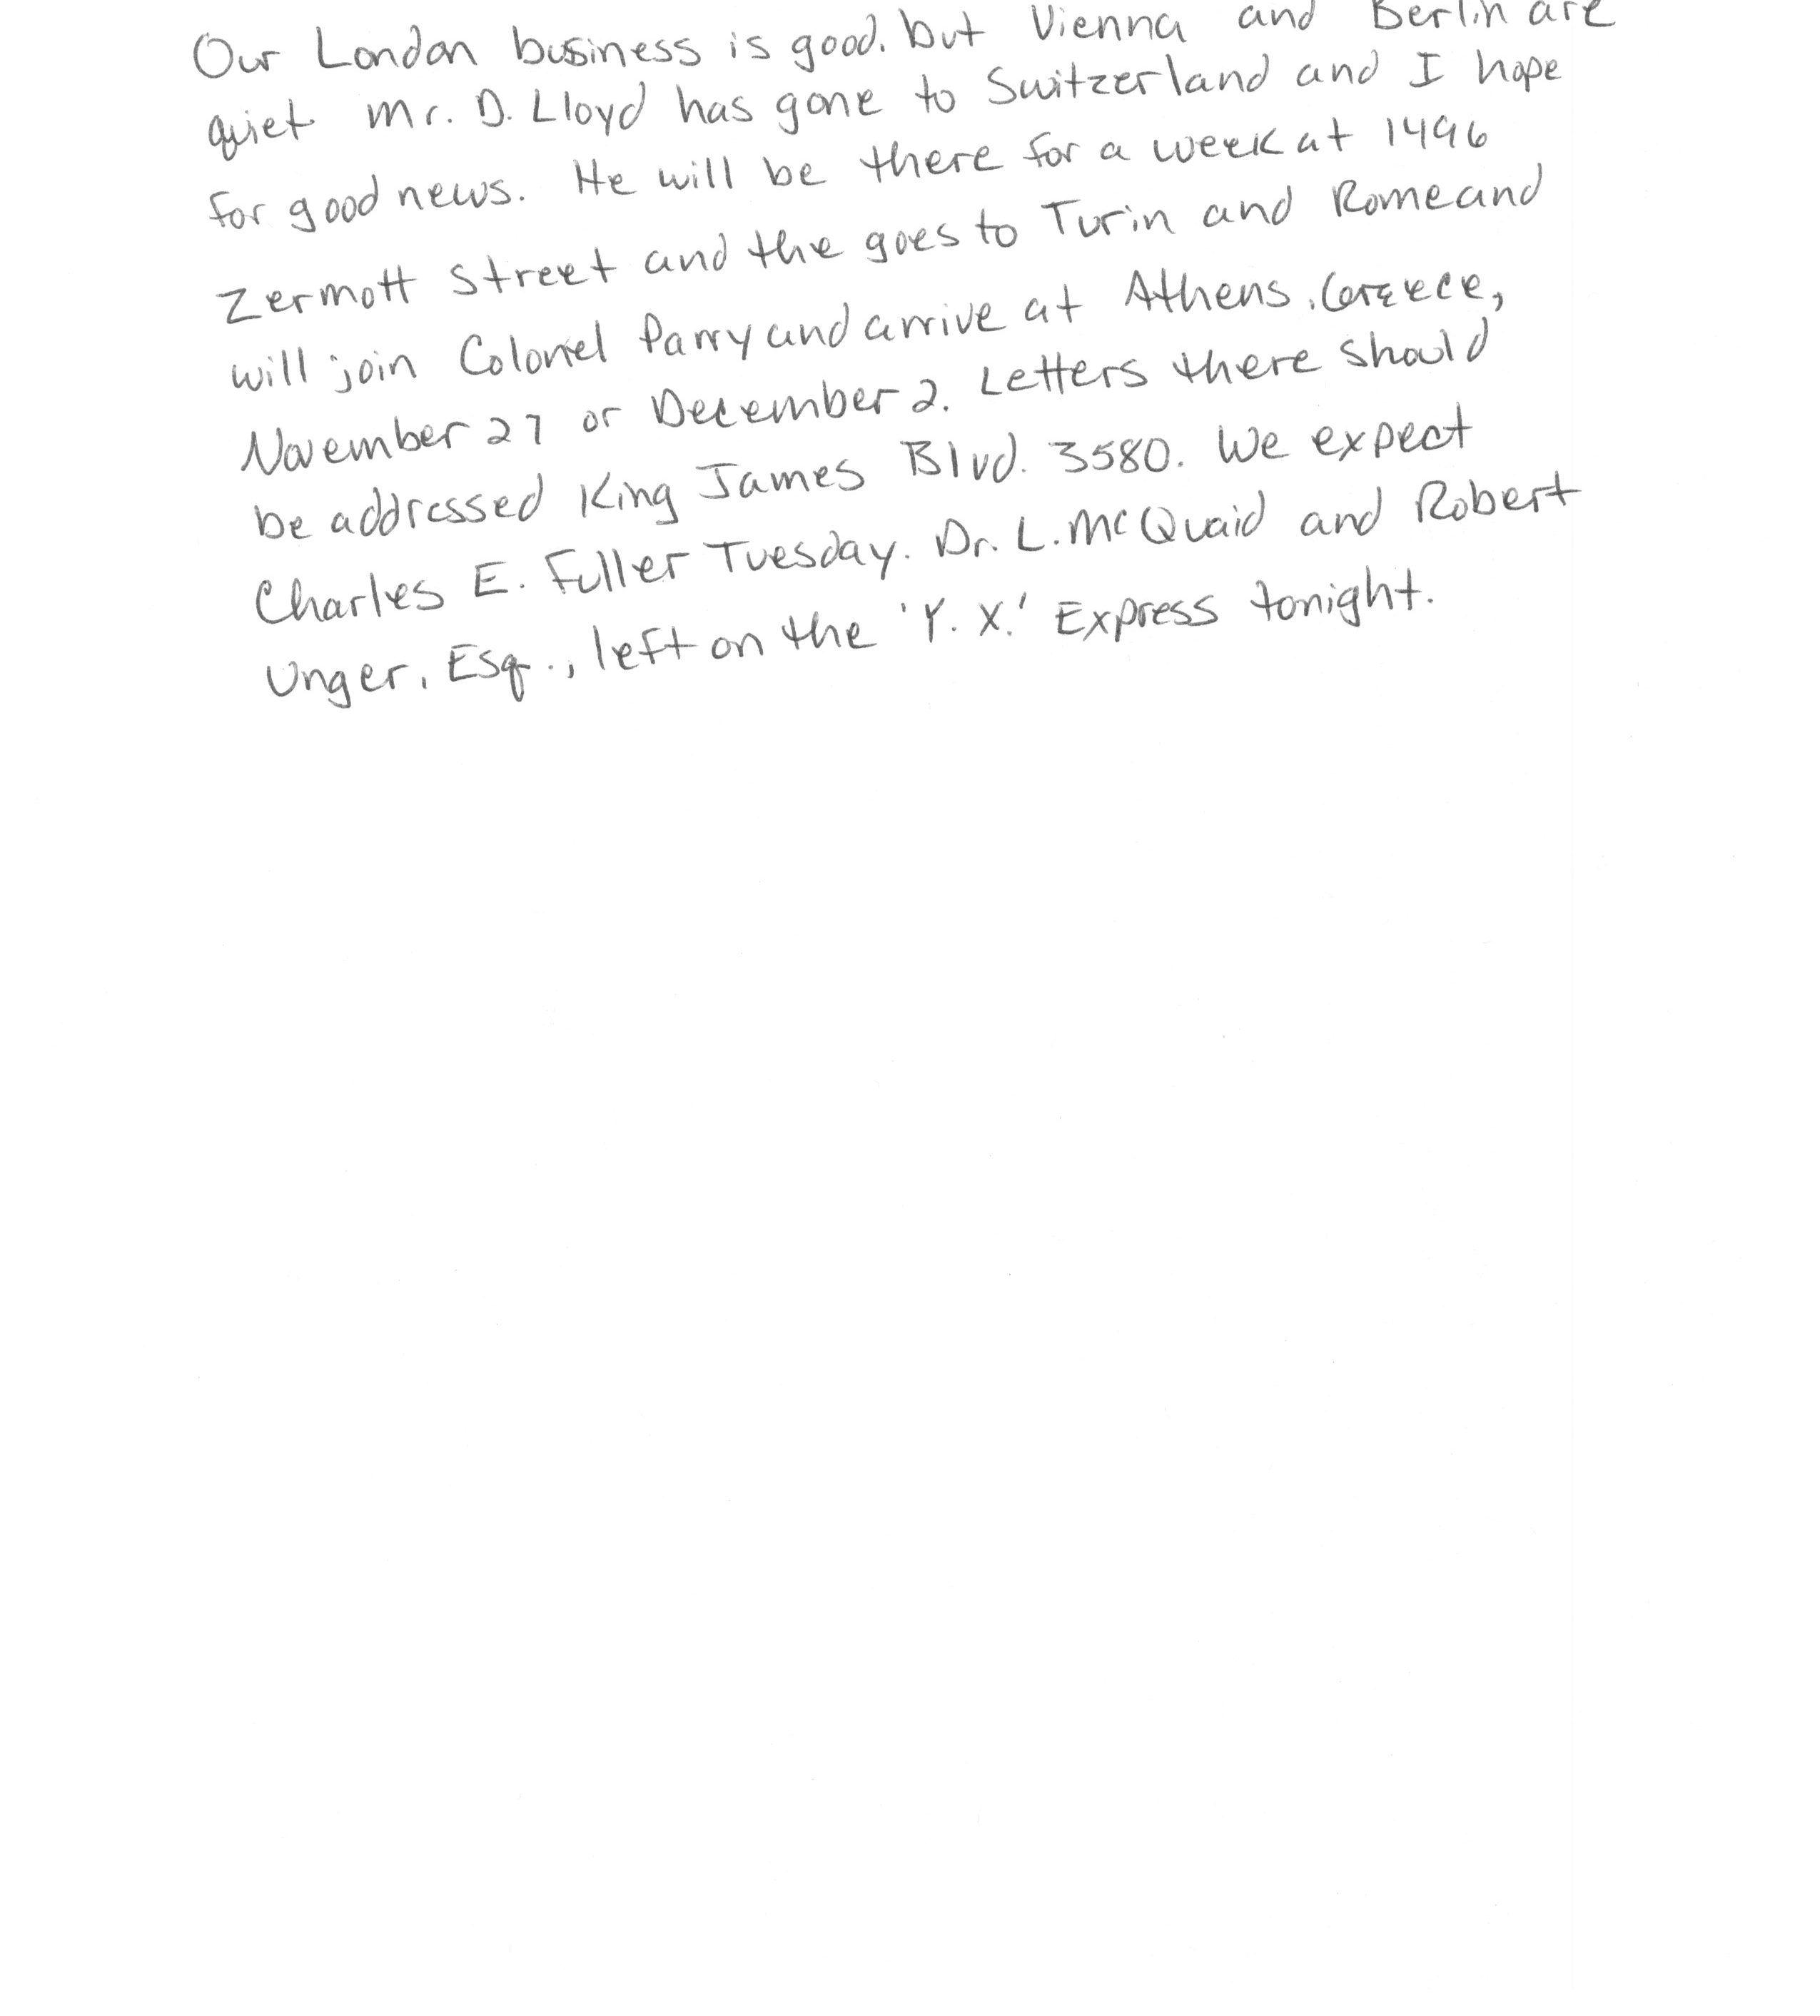 Our London business is good, but Vienna and Berlin are
quiet. Mr. D. Lloyd has gone to Switzerland and I hope
for good news. He will be there for a week at 1496
Zermott Street and the goes to Turin and Rome and
will join Colonel Parry and arrive at Athens, Greece,
November 27 or December 2. Letters there should
be addressed King James Blvd. 3580. We expect
Charles E. Fuller Tuesday. Dr. L. McQuaid and Robert
Unger, Esq., left on the 'Y. X.' Express tonight.